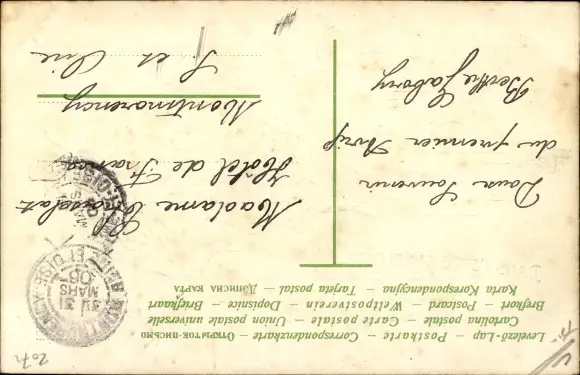 ОТКРЫТОЕ-ПИСЬМО — Correspondenzkarte — Postkarte — Levelező-Lap
Cartolina postale — Carte postale — Union postale universelle
Brefkort — Postcard — Weltpostverein — Dopisnice — Briefkaart
Karta Korespondencyjna — Tarjeta postal — Дописна карта
Doux Souvenir
du premier Avril
Berthe
Madame
Hôtel de France
Montmorency
S et Oise
31
MARS
08
SEINE ET OISE